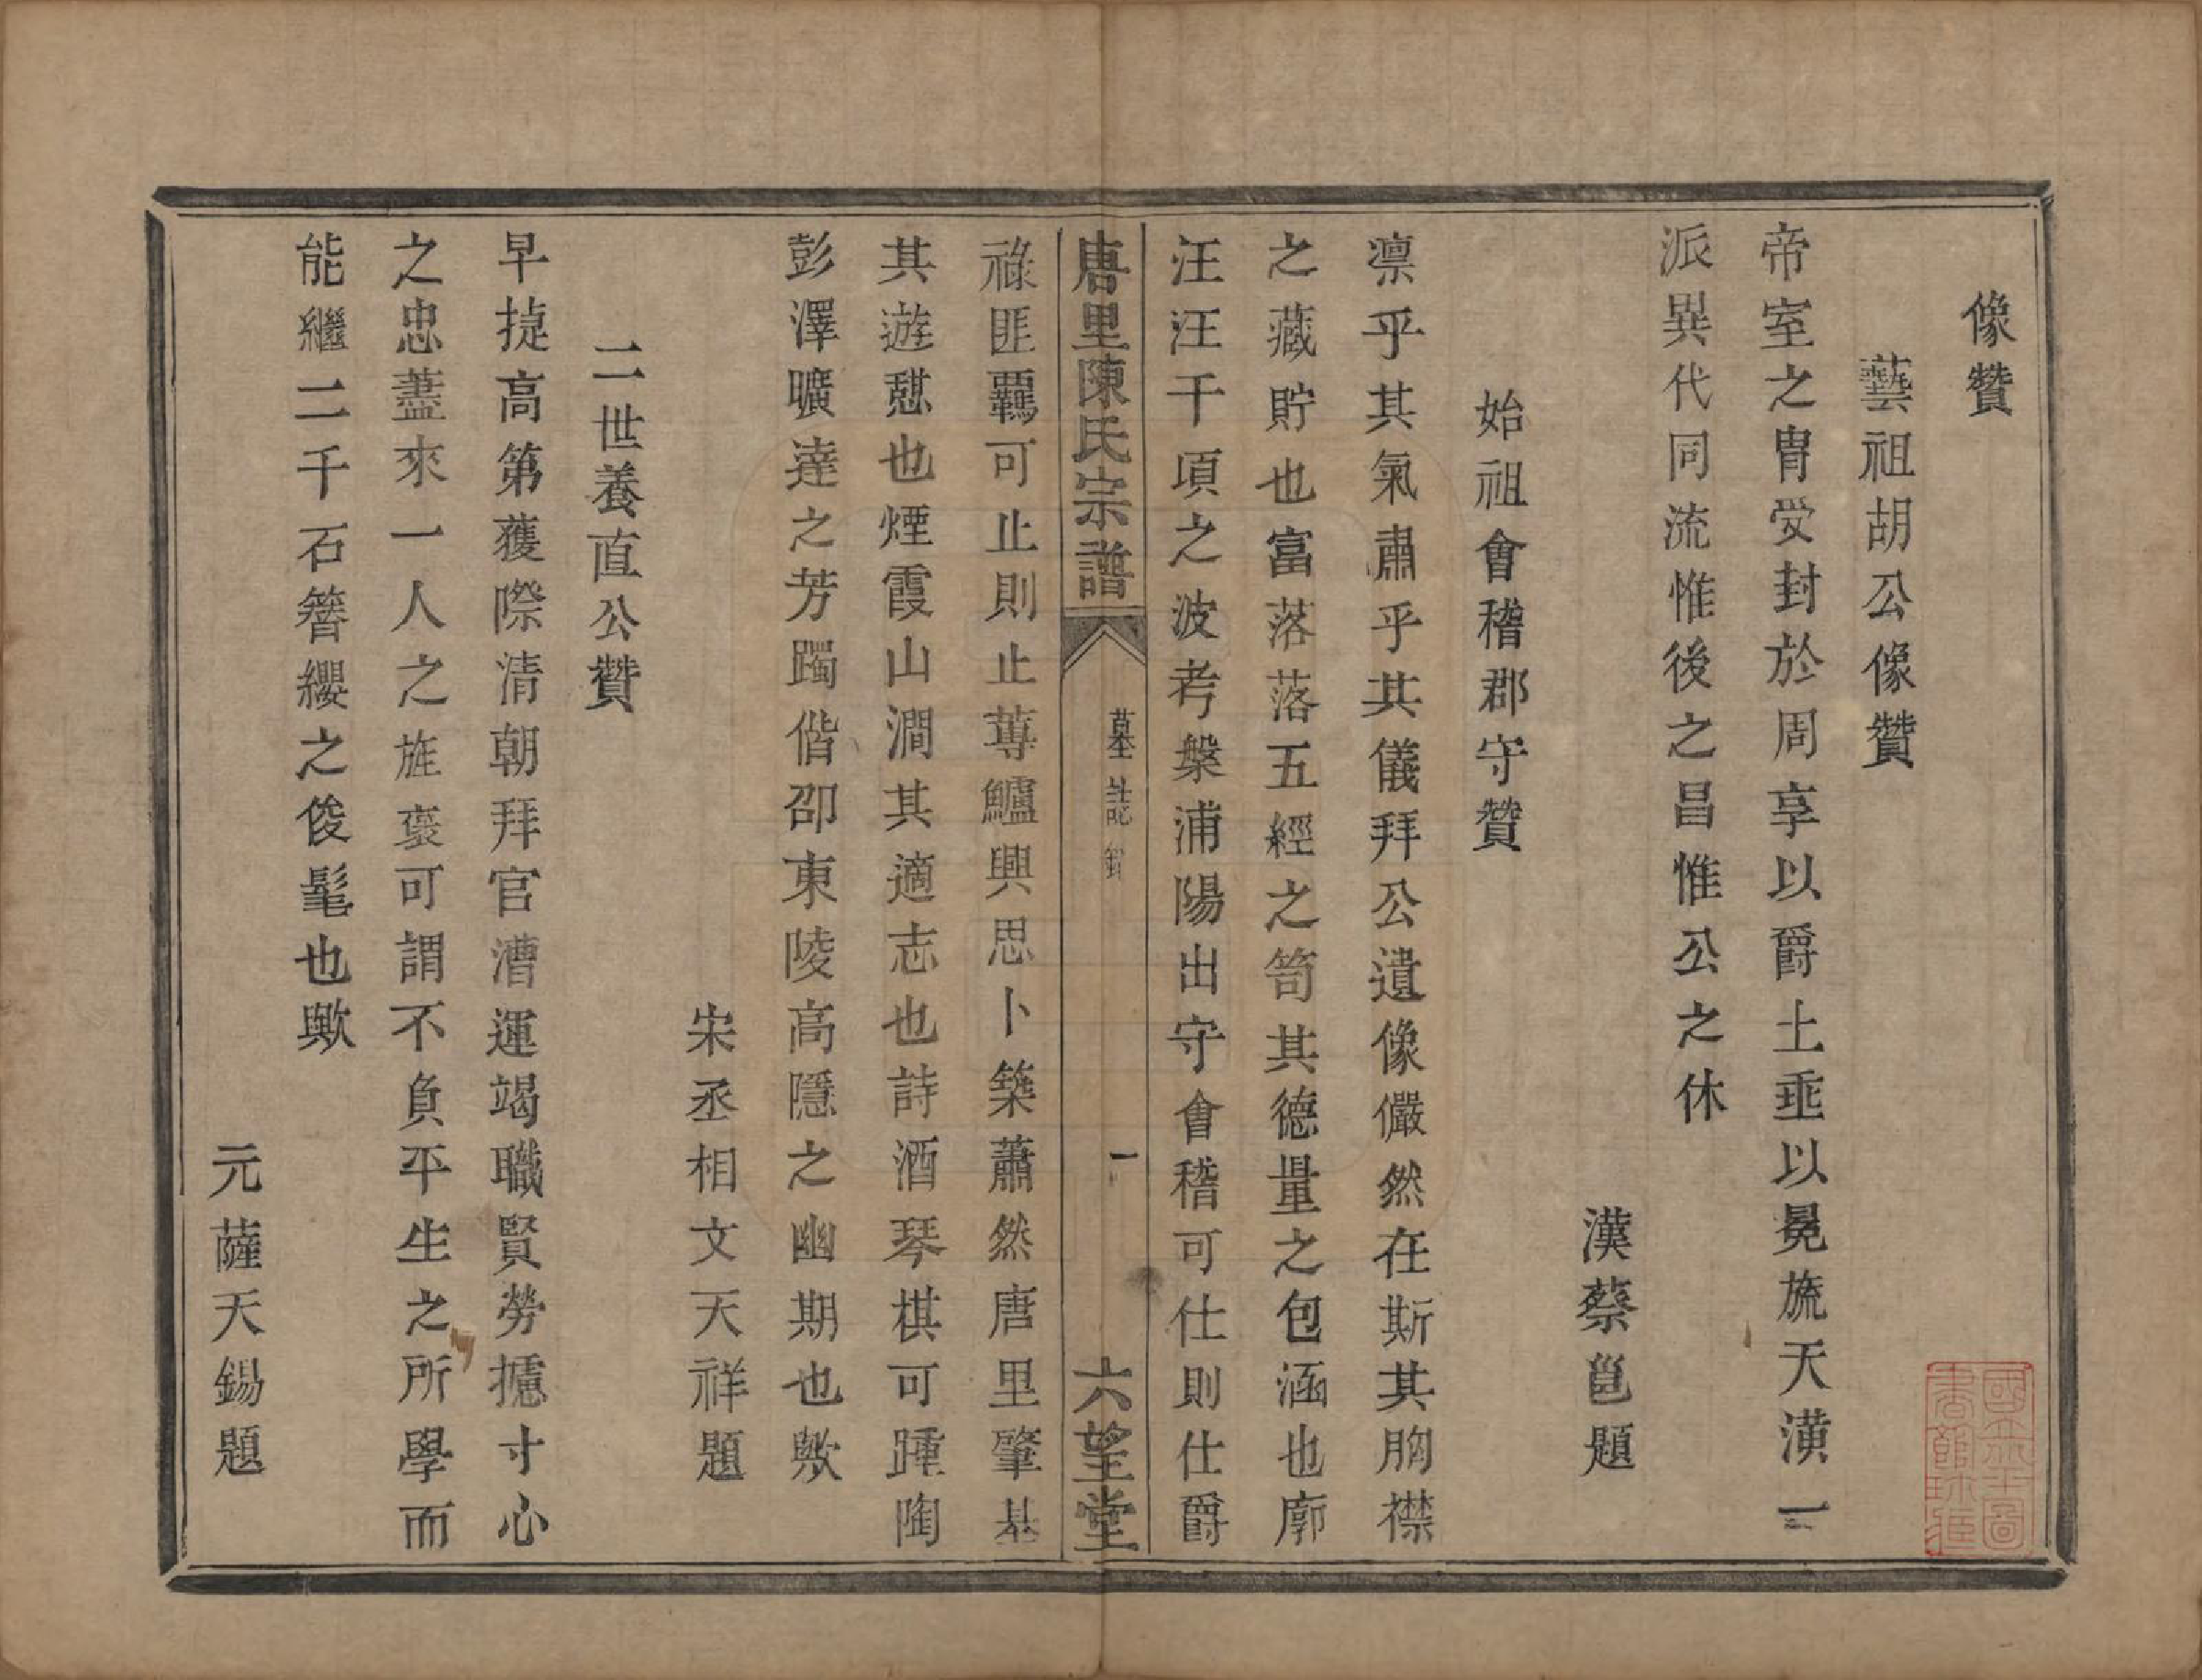 像贊
藝祖胡公像贊
帝室之胄受封於周享以爵土垂以冕旒天潢一
派異代同流惟後之昌惟公之休
漢蔡邕題
始祖會稽郡守贊
凛乎其氣肅乎其儀拜公遺像儼然在斯其胸襟
之藏貯也富落落五經之笥其德量之包涵也廓
汪汪千頃之波考槃浦陽出守會稽可仕則仕爵
唐里陳氏宗譜
墓誌銘
一
六望堂
祿匪覊可止則止蓴鱸興思卜築蕭然唐里肇基
其遊憇也煙霞山澗其適志也詩酒琴棋可踵陶
彭澤曠達之芳躅偕邵東陵高隱之幽期也歟
宋丞相文天祥題
二世養直公贊
早捷高第獲際清朝拜官漕運竭職賢勞攄寸心
之忠藎來一人之旌褒可謂不負平生之所學而
能繼二千石簪纓之俊髦也歟
元薩天錫題
國立北平圖書館珍藏